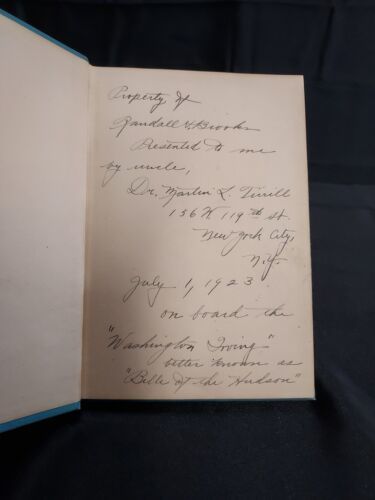 Property of
Randall H. Brooks
Presented to me
by uncle,
Dr. Martin L. Tirrill
136 W. 119th st.
New York City,
N.Y.
July 1, 1923
on board the
"Washington Irving"
better known as
"Belle of the Hudson"